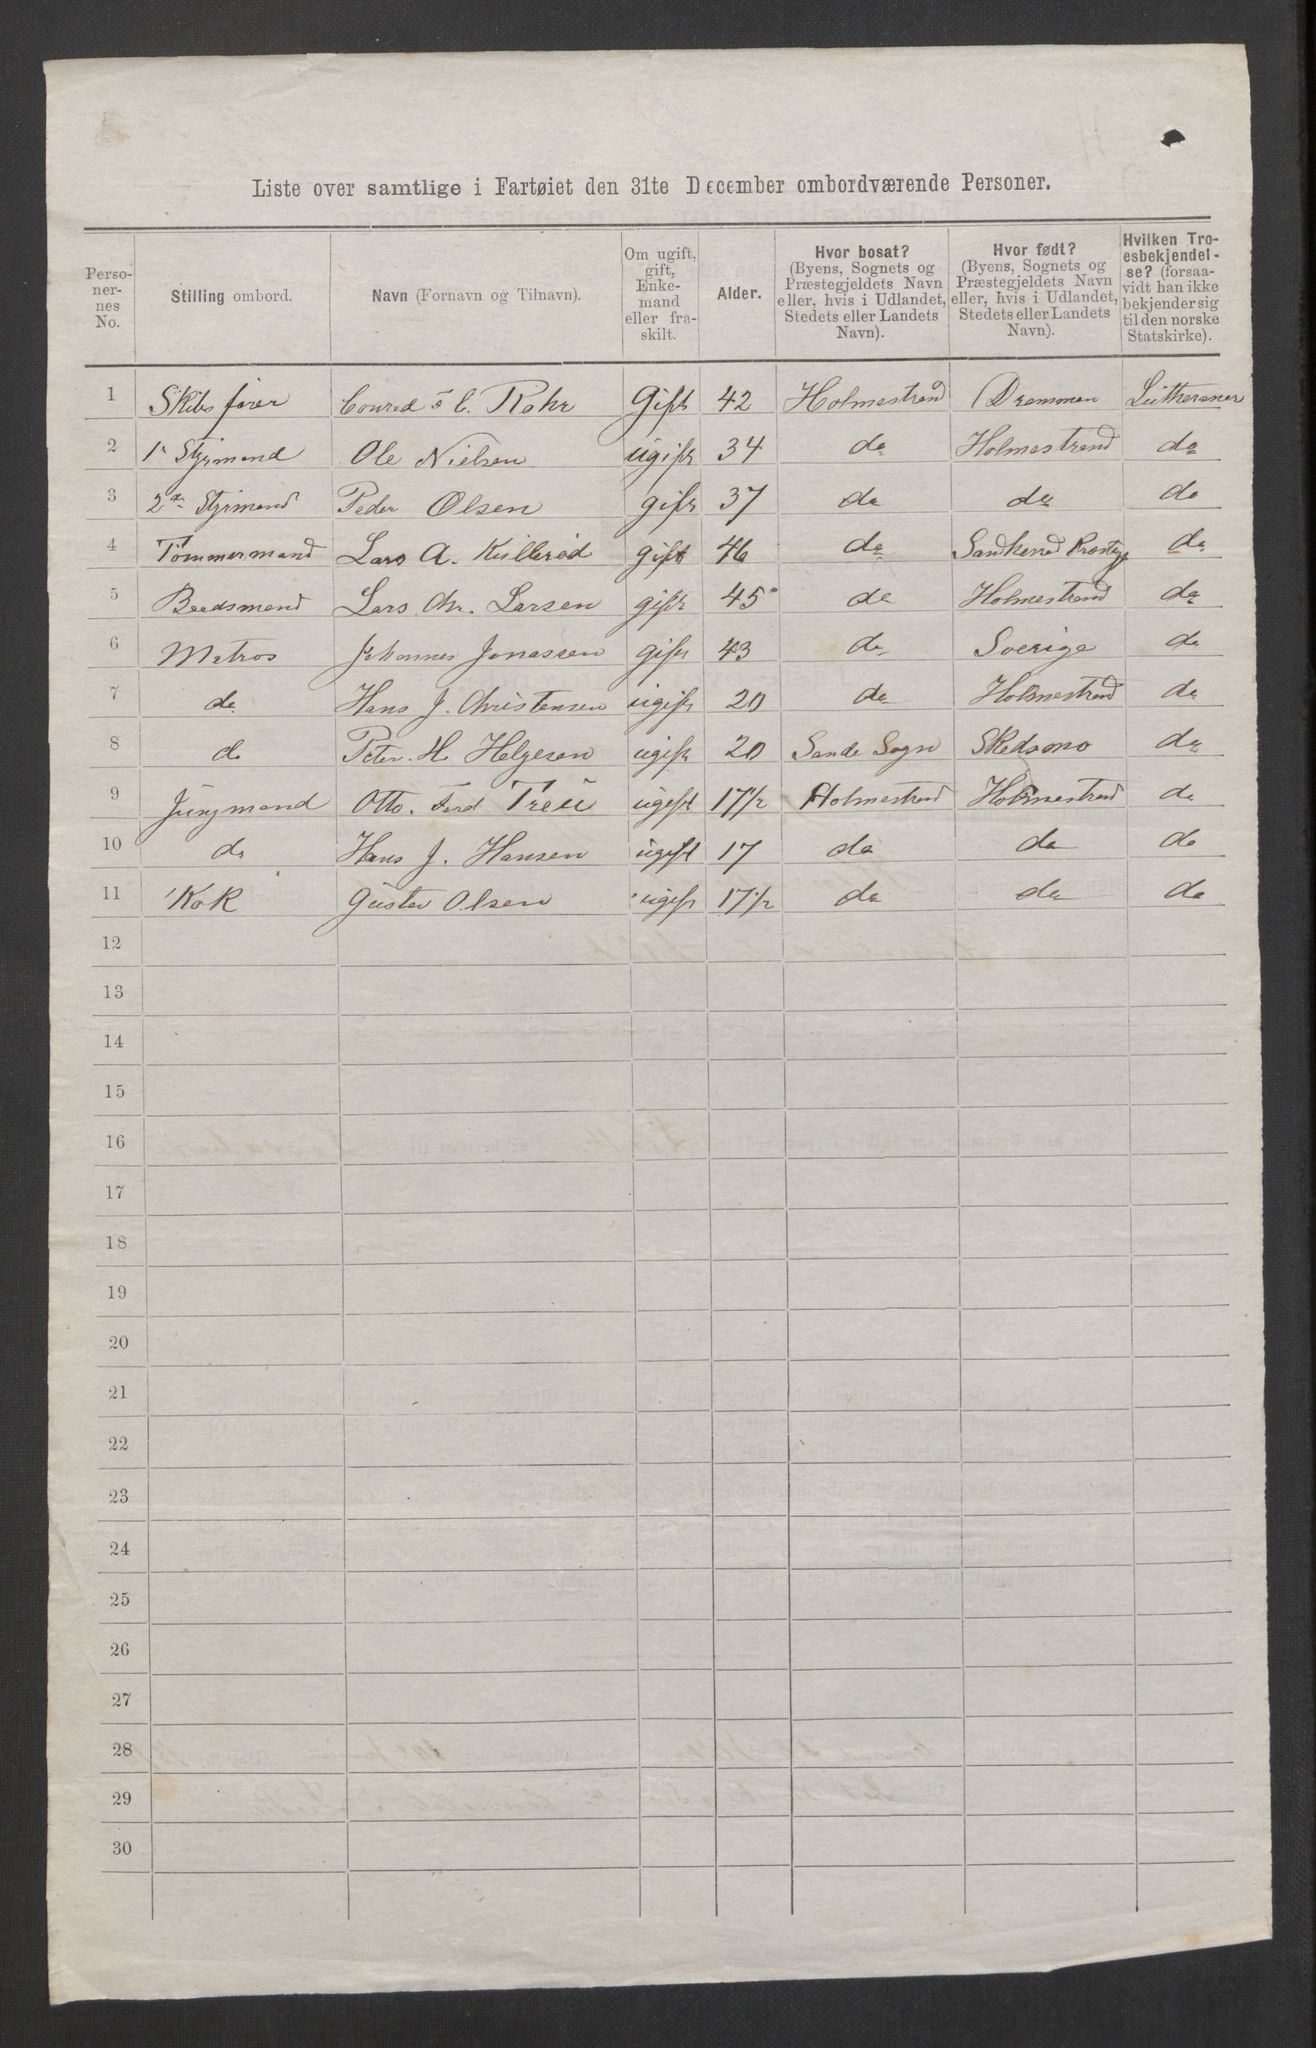 Liste over samtlige i Fartøiet den 31te December ombordværende Personer.
Personernes No. | Stilling ombord. | Navn (Fornavn og Tilnavn). | Om ugift, gift, Enkemand eller fraskilt. | Alder. | Hvor bosat? (Byens, Sognets og Præstegjeldets Navn eller, hvis i Udlandet, Stedets eller Landets Navn). | Hvor født? (Byens, Sognets og Præstegjeldets Navn eller, hvis i Udlandet, Stedets eller Landets Navn). | Hvilken Troesbekjendelse? (forsaavidt han ikke bekjender sig til den norske Statskirke).
1 Skibsfører Conrad C. Rohr Gift 42 Holmestrand Drammen Lutheraner
2 1e Styrmand Ole Nielsen ugift 34 do Holmestrand do
3 2den Styrmand Peder Olsen gift 37 do do do
4 Tømmermand Lars A. Killerød gift 46 do Sandherred do
5 Baadsmand Lars Chr. Larsen gift 45 do Holmestrand do
6 Matros Johannes Jonassen gift 43 do Sverige do
7 do Hans J. Christensen ugift 20 do Holmestrand do
8 do Peter H Helgesen ugift 20 Sande Sogn Skedsmo do
9 Jungmand Otto. Ferd Treu ugift 17 1/2 Holmestrand Holmestrand do
10 do Hans J. Hansen ugift 17 do do do
11 Kok Gustav Olsen ugift 17 1/2 do do do
12
13
14
15
16
17
18
19
20
21
22
23
24
25
26
27
28
29
30